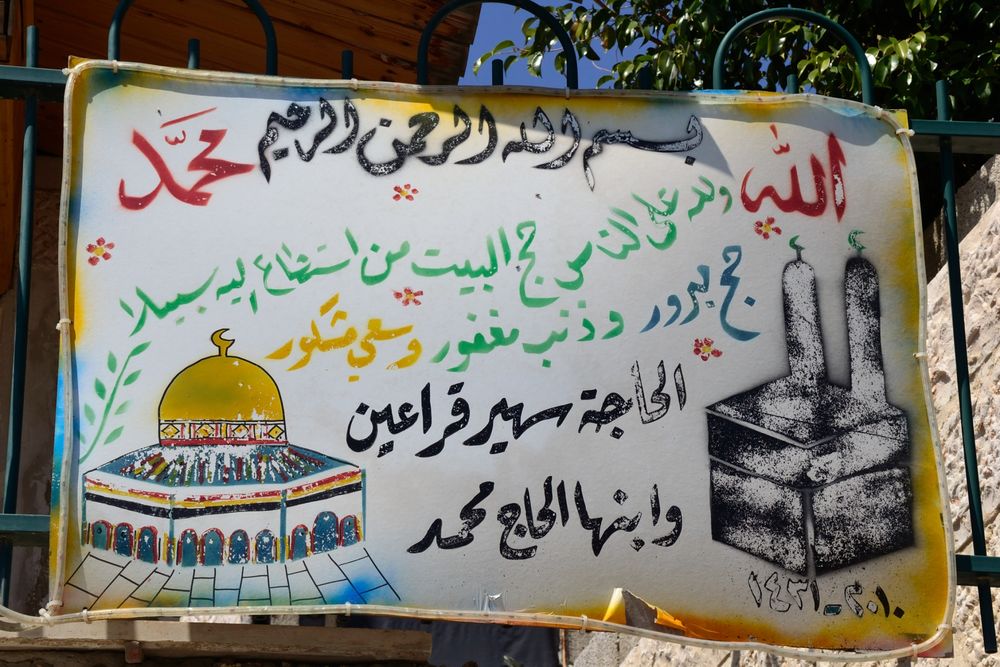 الله
بسم الله الرحمن الرحيم
محمد
ولله على الناس حج البيت من استطاع إليه سبيلا
حج مبرور
وذنب مغفور
وسعي مشكور
الحاجة سهير قراعين
وابنها الحاج محمد
١٤٣١ - ٢٠١٠